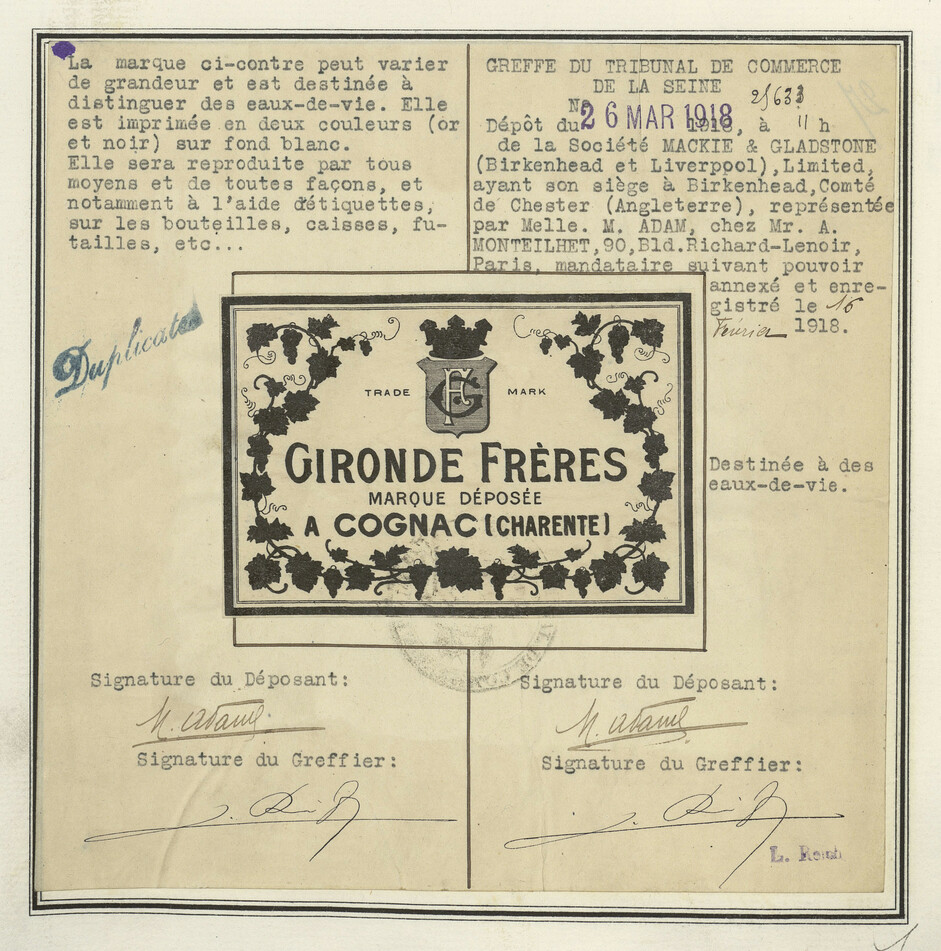 La marque ci-contre peut varier
de grandeur et est destinée à
distinguer des eaux-de-vie. Elle
est imprimée en deux couleurs (or
et noir) sur fond blanc.
Elle sera reproduite par tous
moyens et de toutes façons, et
notamment à l'aide d'étiquettes,
sur les bouteilles, caisses, fu-
tailles, etc...
GREFFE DU TRIBUNAL DE COMMERCE
DE LA SEINE
No
Dépôt du 26 MAR 1918 1918, à 11 h
de la Société MACKIE & GLADSTONE
(Birkenhead et Liverpool),Limited,
ayant son siège à Birkenhead,Comté
de Chester (Angleterre), représentée
par Melle. M. ADAM, chez Mr. A.
MONTEILHET,90,Bld.Richard-Lenoir,
Paris, mandataire suivant pouvoir
annexé et enre-
gistré le 16
Février 1918.
Duplicata
TRADE MARK
GIRONDE FRÈRES
MARQUE DÉPOSÉE
A COGNAC (CHARENTE)
Destinée à des
eaux-de-vie.
Signature du Déposant:
M. Adam
Signature du Greffier:
Signature du Déposant:
M. Adam
Signature du Greffier: